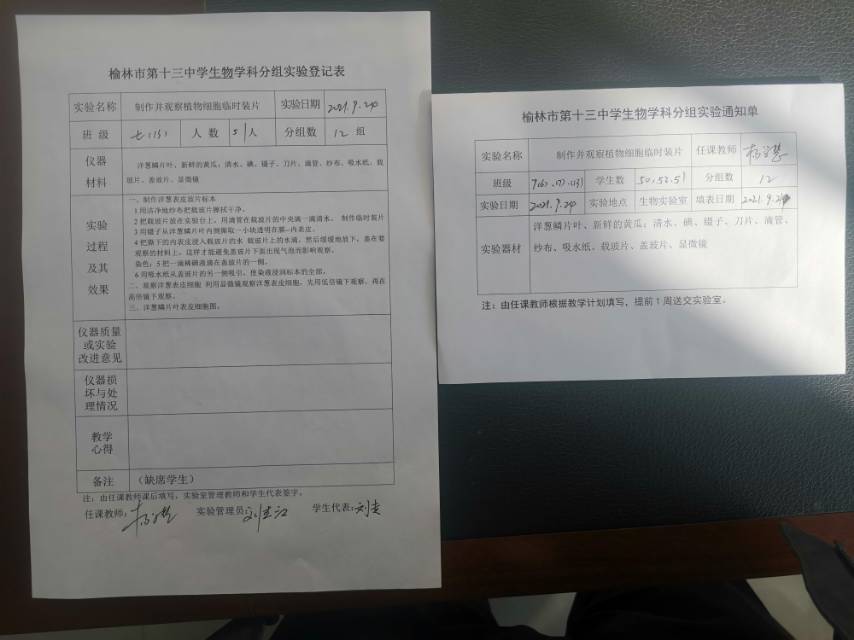 榆林市第十三中学生物学科分组实验登记表
实验名称 制作并观察植物细胞临时装片 实验日期 2021.9.24
班 级 七(13) 人 数 51人 分组数 12 组
仪器
材料
洋葱鳞片叶、新鲜的黄瓜；清水、碘、镊子、刀片、滴管、纱布、吸水纸、载
玻片、盖玻片、显微镜
实验
过程
及其
效果
一、制作洋葱表皮玻片标本
1用洁净地纱布把载玻片擦拭干净。
2把载玻片放在实验台上，用滴管在载玻片的中央滴一滴清水。 制作临时装片
3用镊子从洋葱鳞片叶内侧撕取一小块透明在膜--内表皮。
4把撕下的内表皮浸入载玻片的水 载玻片上的水滴，然后缓缓地放下，盖在要
观察的材料上，这样才能避免盖玻片下面出现气泡而影响观察。
染色：5把一滴稀碘液滴在盖玻片的一侧。
6用吸水纸从盖玻片的另一侧吸引，使染液浸润标本的全部。
二、观察洋葱表皮细胞 利用显微镜观察洋葱表皮细胞，先用低倍镜下观察，再在
高倍镜下观察。
三、洋葱鳞片叶表皮细胞图。
仪器质量
或实验
改进意见
仪器损
坏与处
理情况
教学
心得
备注 （缺席学生）
注：由任课教师课后填写，实验室管理教师和学生代表签字。
任课教师： 实验管理员 学生代表：
榆林市第十三中学生物学科分组实验通知单
实验名称 制作并观察植物细胞临时装片 任课教师
班级 7(6).(7).(13) 学生数 50,52,51 分组数 12
实验日期 2021.9.24 实验地点 生物实验室 填表日期 2021.9.24
实验器材
洋葱鳞片叶、新鲜的黄瓜；清水、碘、镊子、刀片、滴管、
纱布、吸水纸、载玻片、盖玻片、显微镜
注：由任课教师根据教学计划填写，提前1周送交实验室。